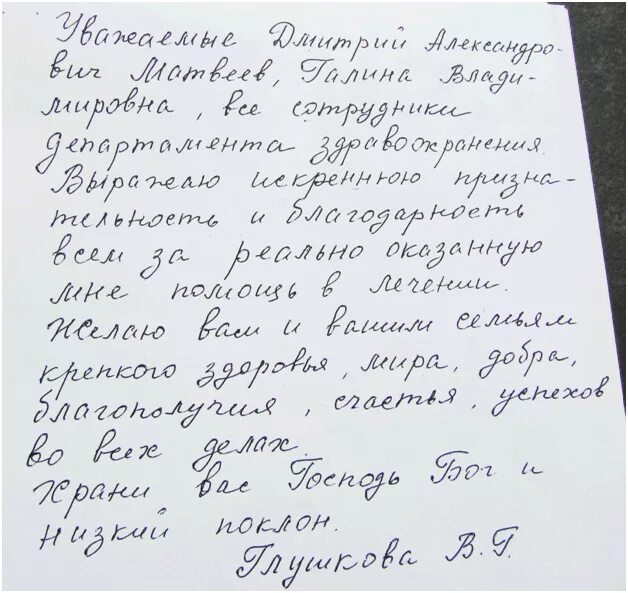 Уважаемые Дмитрий Александро-
вич Матвеев, Галина Влади-
мировна, все сотрудники
департамента здравоохранения.
Выражаю искреннюю призна-
тельность и благодарность
всем за реально оказанную
мне помощь в лечении.
Желаю вам и вашим семьям
крепкого здоровья, мира, добра,
благополучия, счастья, успехов
во всех делах.
Храни вас Господь Бог и
низкий поклон.
Глушкова В.Г.